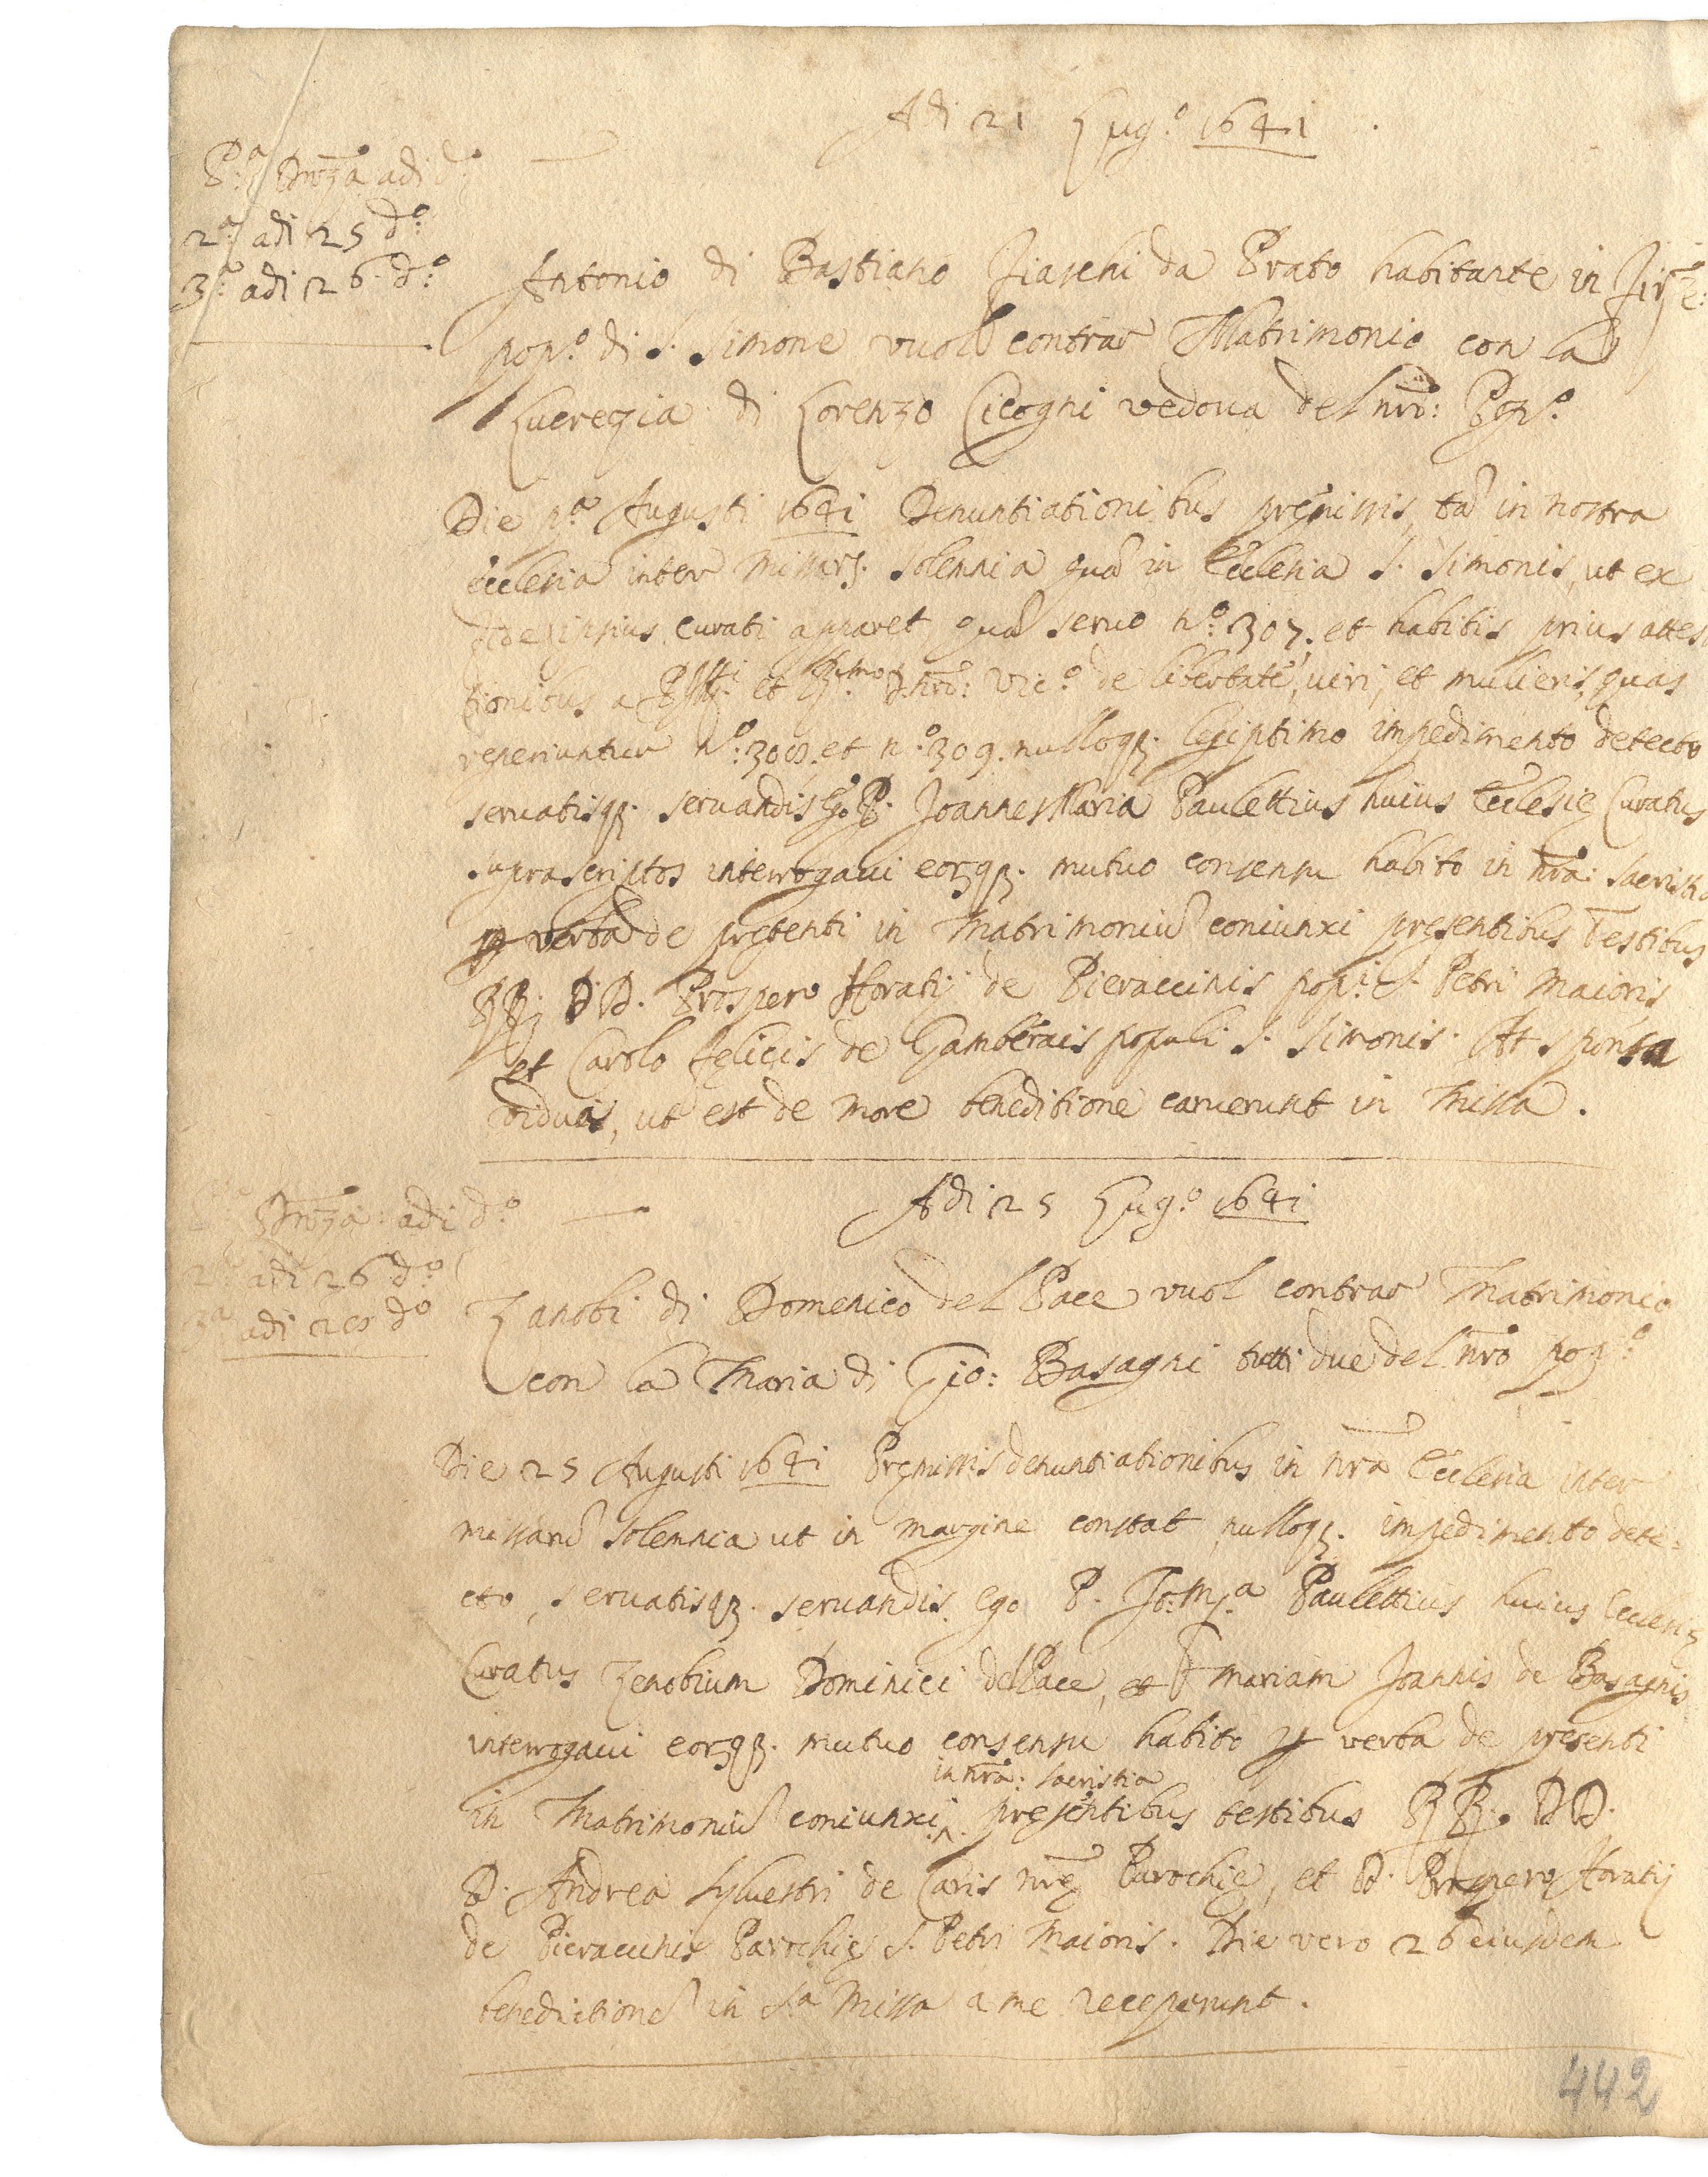 Adi 21 Lug.º 1641
P.ª Dnza adi d.º
2.ª adi 25 d.º
3.ª adi 26 d.º
Antonio di Bastiano Fiaschi da Prato habitante in Firze:
pop.º di S. Simone vuol contrar Matrimonio con la
Lucrezia di Lorenzo Cicogni vedova del nro: Pop.º
Die p.ª Augusti 1641 Denuntiationibus premissis, tã in nostra
Ecclesia inter missarz. solennia quã in Ecclesia S. Simonis, ut ex
fide ipsius Curati apparet quã servo n.º 307. et habitis prius attes
tionibus a et Vic.º de libertate, viri, et mulieris, quas
reperiuntur n.º 308. et n.º 309. nulloq3. legiptimo impedimento detecto
servatisq3. servandis Ego P. Joannes Maria Paulettius huius Ecclesię Curatus
suprascriptos interrogavi eorzq3. mutuo consensu habito in nra: sacristia
p verba de pręsenti in Matrimoniũ coniunxi pręsentibus Testibus
RR. DD. Prospero Horatij de Pieraccinis pop.i S. Petri Maioris
et Carolo felicis de Gamberais populi S. Simonis. At sponsa
viduas, ut est de more beneditione caruerunt in Missa.
Adi 25 Lug.º 1641
Dnza: adi d.º
2.ª adi 26 d.º
3.ª adi 28 d.º
Zanobi di Domenico del Pace vuol contrar Matrimonio
con la Maria di Gio: Basagni tutti due del nro pop.º
Die 25 Augusti 1641 Pręmissis denuntiationibus in nra Ecclesia inter
missarũ solennia ut in margine constat nulloq3. impedimento dete=
cto, servatisq3. servandis Ego P. Jo: M.ª Paulettius huius Ecclesię
Curatus Zenobium Dominici del Pace, et mariam Joannis de Basagnis
interrogavi eorzq3. mutuo consensu habito p verba de presenti
in nra: sacristia
in Matrimoniũ coniunxi, pręsentibus testibus RR. DD.
D. Andrea Sylvestri de Caris nrę Parochię, et D. Prospero Horatij
de Pieraccinis Parochię S. Petri Maioris. Die vero 26 eiusdem
benedictionẽ in S.ª Missa a me receperunt.
442